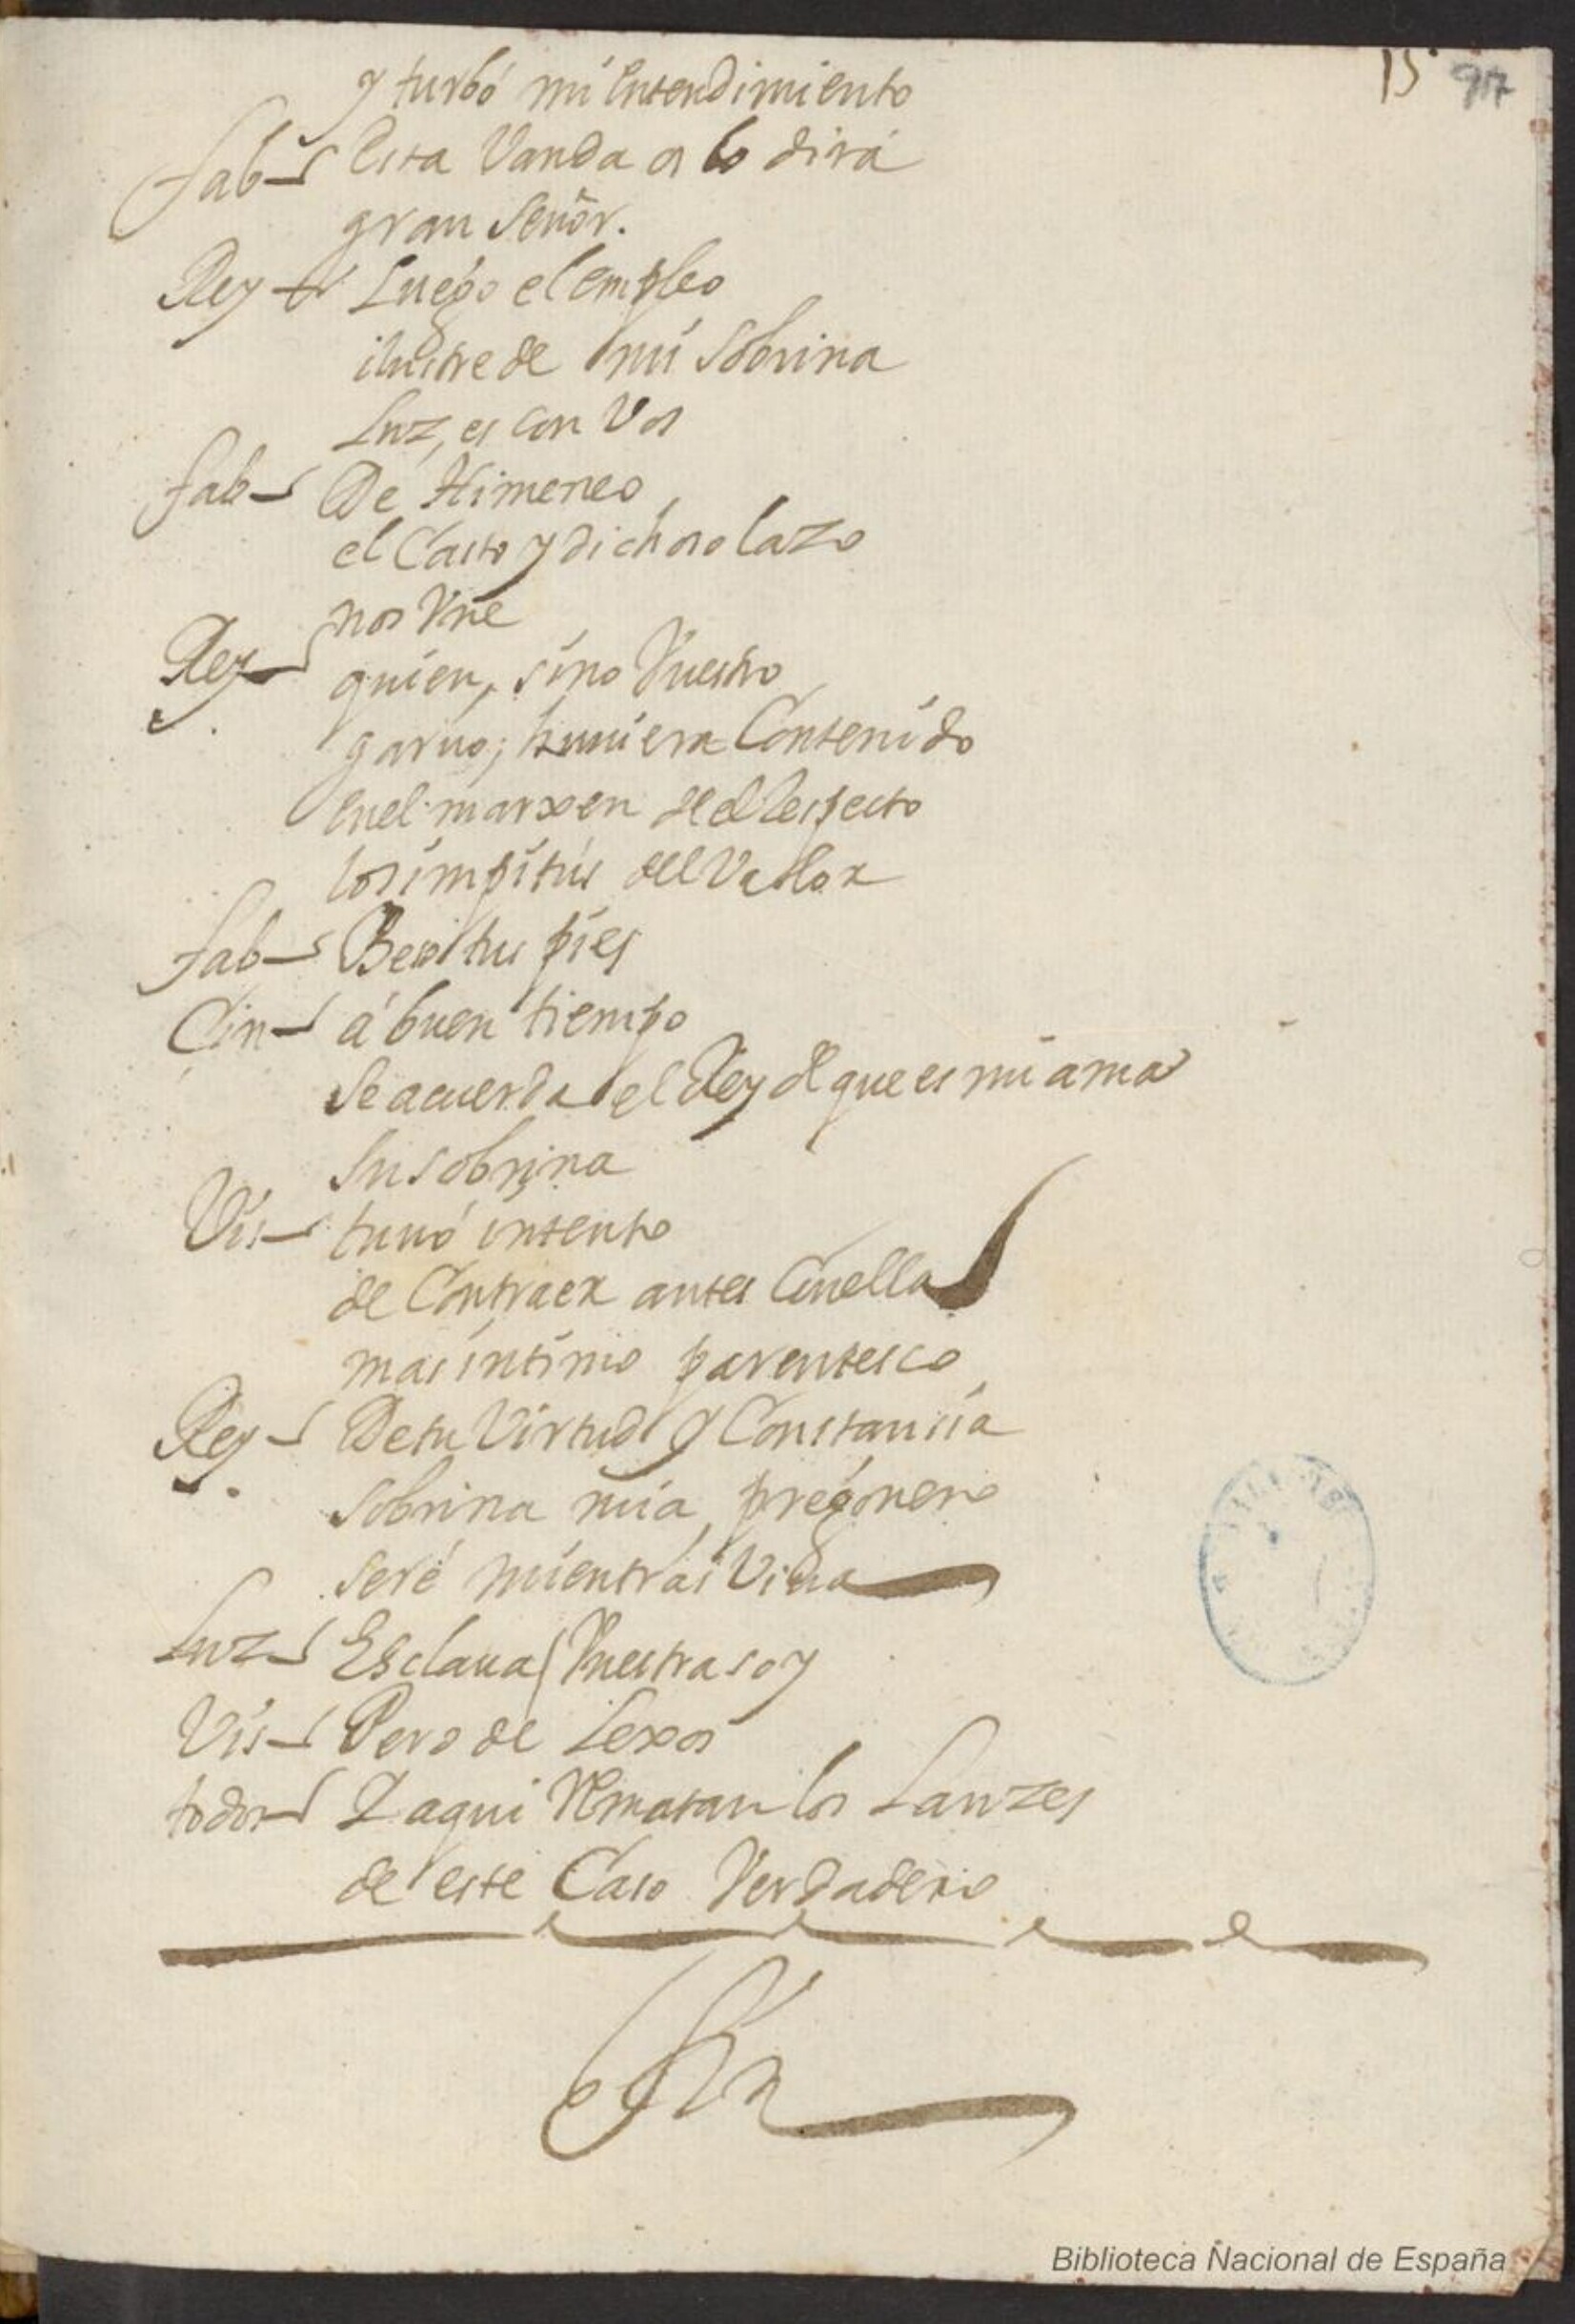 15 97
y turbó mi entendimiento
fab Esta Vanda os lo dirá
gran Señor.
Rey Luego el empleo
ilustre de mi Sobrina
Luz, es con Vos
fab De Himeneo
el Casto y dichoso lazo
nos Vne
Rey quien, sino Vuestro
garuo; huuiera Contenido
en el marxen de el Respecto
los impitus del Vallor
fab Beso tus pies
Cin á buen tiempo
Se acuerda el Rey de que es mi ama
Su sobrina
Vis tuuó intento
de Contraer antes Con ella
mas intimo parentesco
Rey De tu Virtud y Constancia
Sobrina mia, pregonero
Seré mientras Viua
Luz Esclaua Vuestra soy
Vis Pero de Lexos
todos I aqui Rematan los Lanzes
de este Caso Verdadero
Fin
Biblioteca Nacional de España